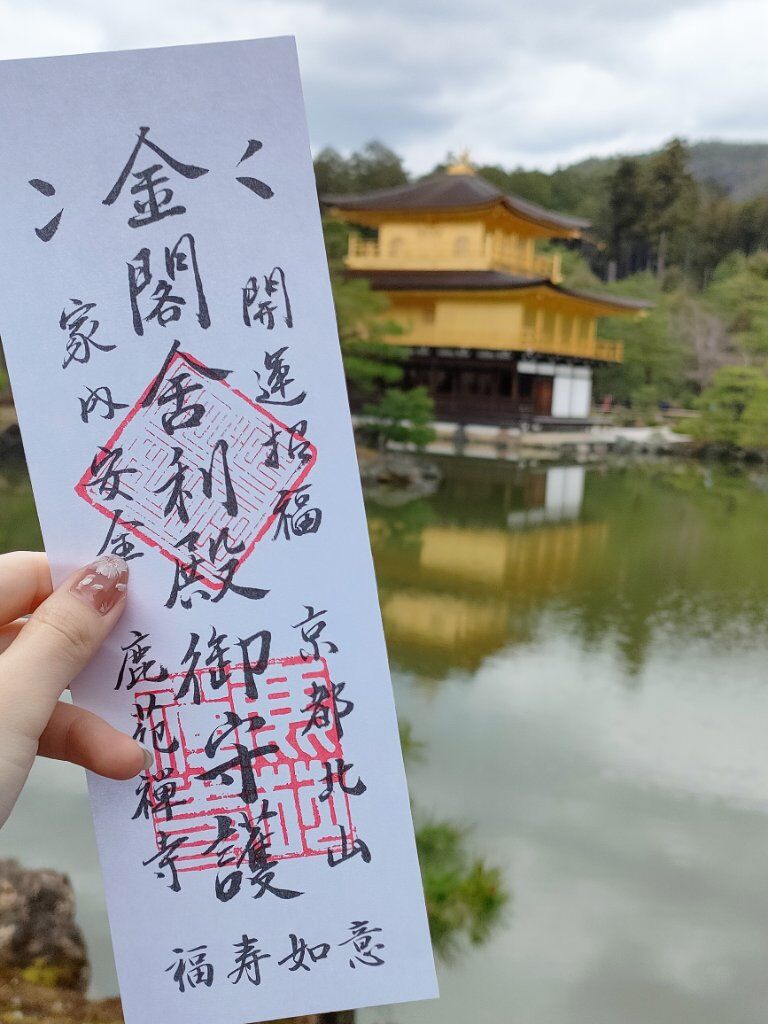 金閣舎利殿御守護
開運招福
家内安全
京都北山
鹿苑禅寺
福寿如意